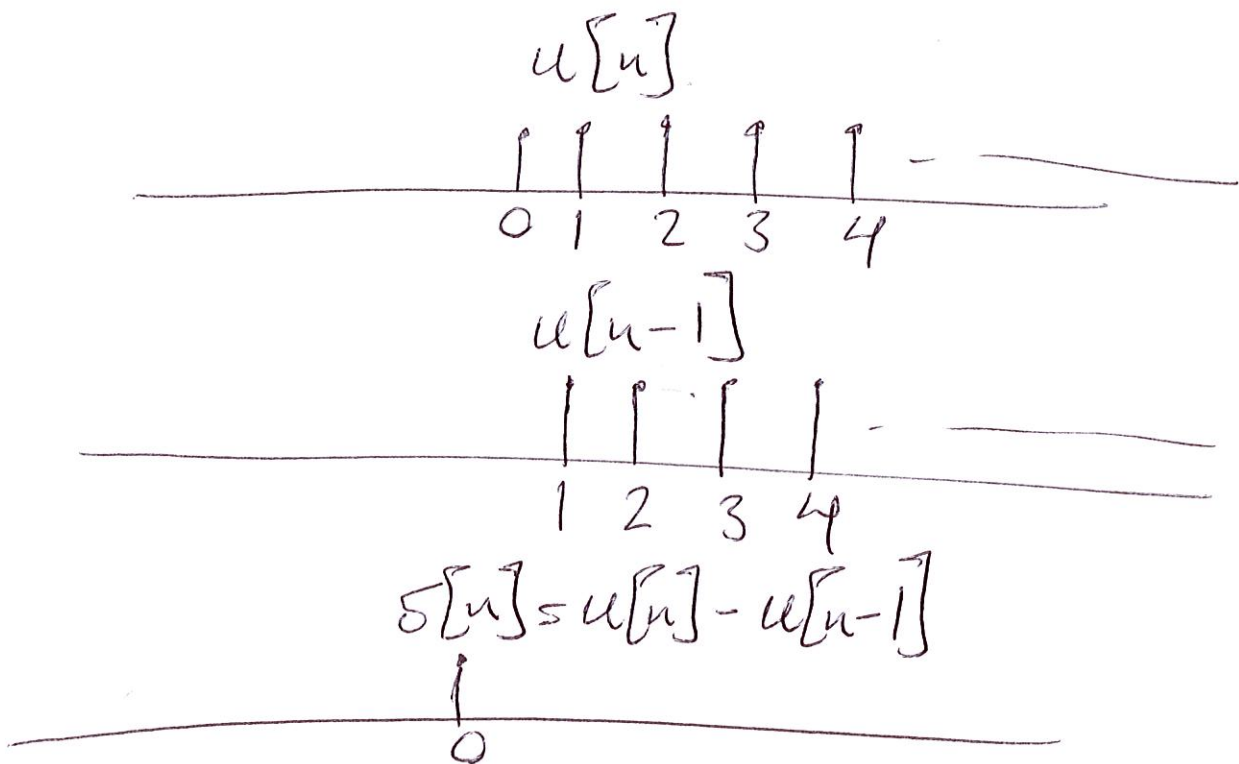 u[n]
0 1 2 3 4
u[n-1]
1 2 3 4
δ[n] = u[n] - u[n-1]
0